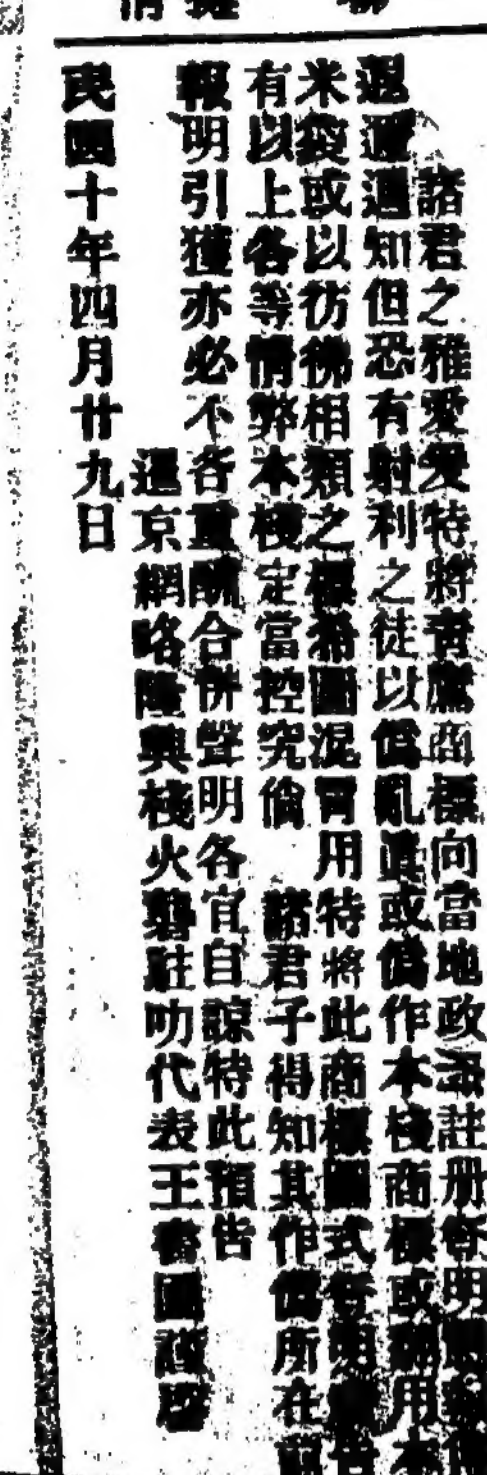 諸君之雅愛爰特將青鷹商標向當地政府註册存明
遐邇週知但恐有射利之徒以僞亂眞或僞作本棧商標或用本
米袋或以彷彿相類之標希圖混冒用特將此商標圖式登明廣告
有以上各等情弊本棧定當控究倘 諸君子得知其作僞所在
報明引獲亦必不吝重酬合併聲明各宜自諒特此預告
暹京網略隆興棧火礱駐叻代表王 國謹啓
民國十年四月廿九日